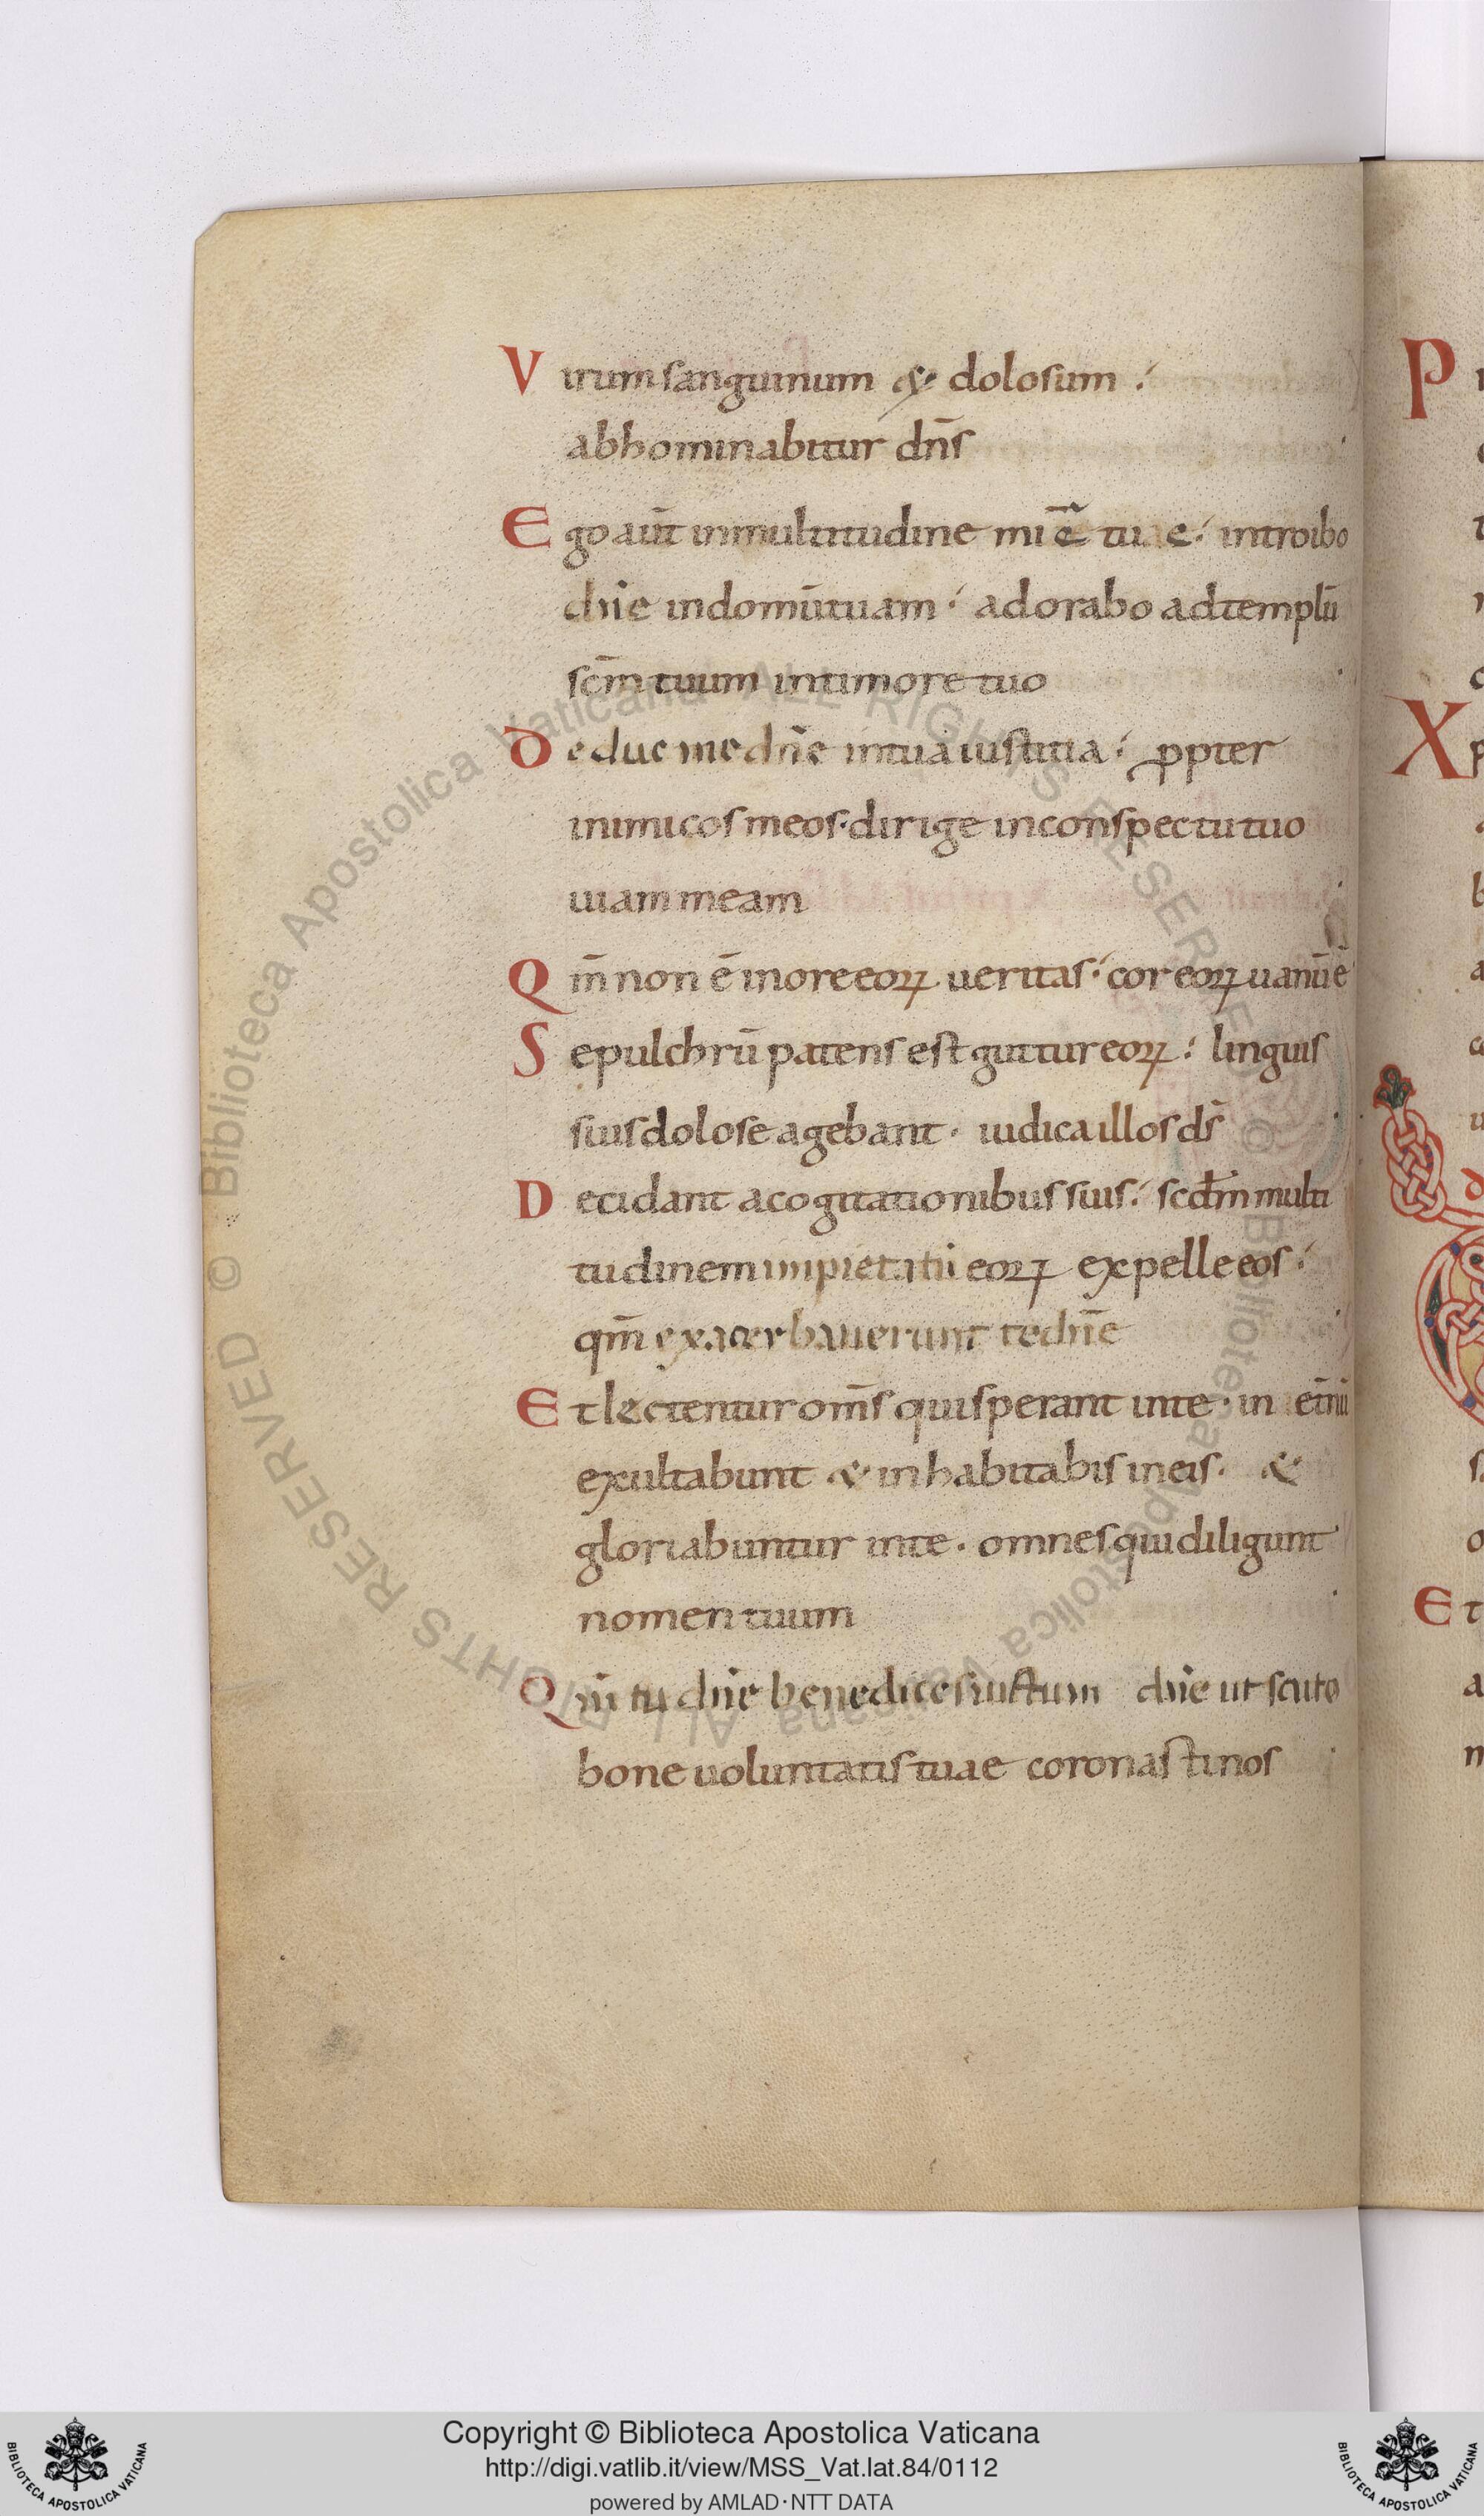 Virum sanguinum & dolosum
abhominabitur dn̄s
Ego aūt in multitudine mi c̄ tuae introibo
dn̄e in domū tuam adorabo ad templū
sc̄m tuum in timore tuo
Deduc me dn̄e in tua iustitia ꝓpter
inimicos meos· dirige in conspectu tuo
uiam meam
Qm̄ non ē in ore eoꝝ ueritas cor eoꝝ uanū ē
Sepulchrū patens est guttur eoꝝ linguis
suis dolose agebant· iudica illos ds̄
Decidant a cogitationibus suis scdm̄ multi
tudinem impietatū eoꝝ expelle eos
qm̄ exacerbauerunt te dn̄e
Et lectentur om̄s qui sperant in te· in et̄nū
exultabunt & inhabitabis in eis· &
gloriabuntur in te· omnes qui diligunt
nomen tuum
Qm̄ tu dn̄e benedices iustum dn̄e ut scuto
bone uoluntatis tuae coronasti nos
P
X
Et
© Biblioteca Apostolica Vaticana ALL RIGHTS RESERVED © Biblioteca Apostolica Vaticana ALL RIGHTS RESERVED
Copyright © Biblioteca Apostolica Vaticana
http://digi.vatlib.it/view/MSS_Vat.lat.84/0112
powered by AMLAD·NTT DATA
BIBLIOTECA APOSTOLICA VATICANA
BIBLIOTECA APOSTOLICA VATICANA